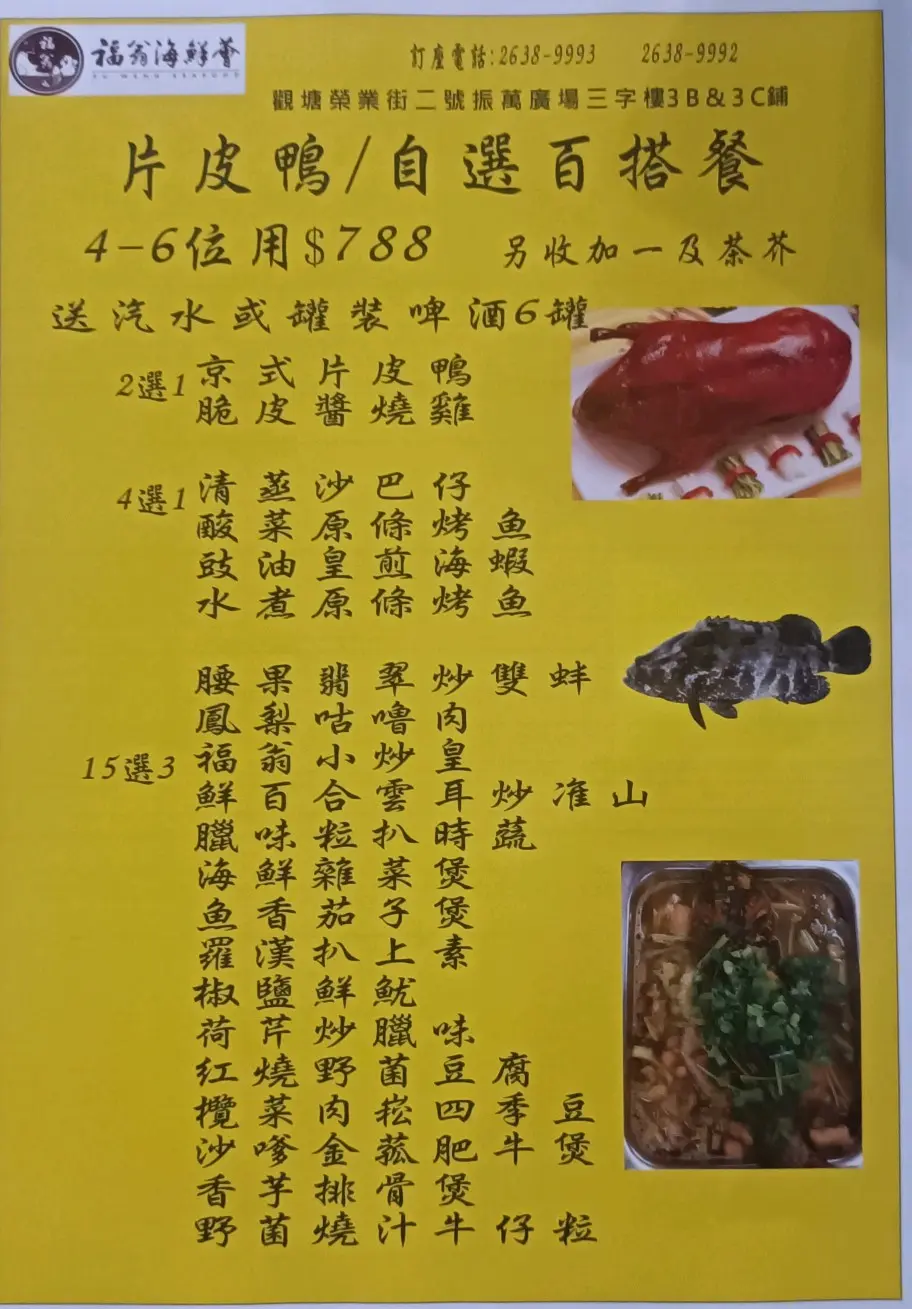 福翁海鮮薈
FU WENG SEAFOOD
訂座電話:2638-9993 2638-9992
觀塘榮業街二號振萬廣場三字樓3B&3C鋪
片皮鴨/自選百搭餐
4-6位用$788 另收加一及茶芥
送汽水或罐裝啤酒6罐
2選1
京式片皮鴨
脆皮醬燒雞
4選1
清蒸沙巴仔
酸菜原條烤魚
豉油皇煎海蝦
水煮原條烤魚
15選3
腰果翡翠炒雙蚌
鳳梨咕嚕肉
福翁小炒皇
鮮百合雲耳炒淮山
臘味粒扒時蔬
海鮮雜菜煲
魚香茄子煲
羅漢扒上素
椒鹽鮮魷
荷芹炒臘味
紅燒野菌豆腐
欖菜肉崧四季豆
沙嗲金菰肥牛煲
香芋排骨煲
野菌燒汁牛仔粒